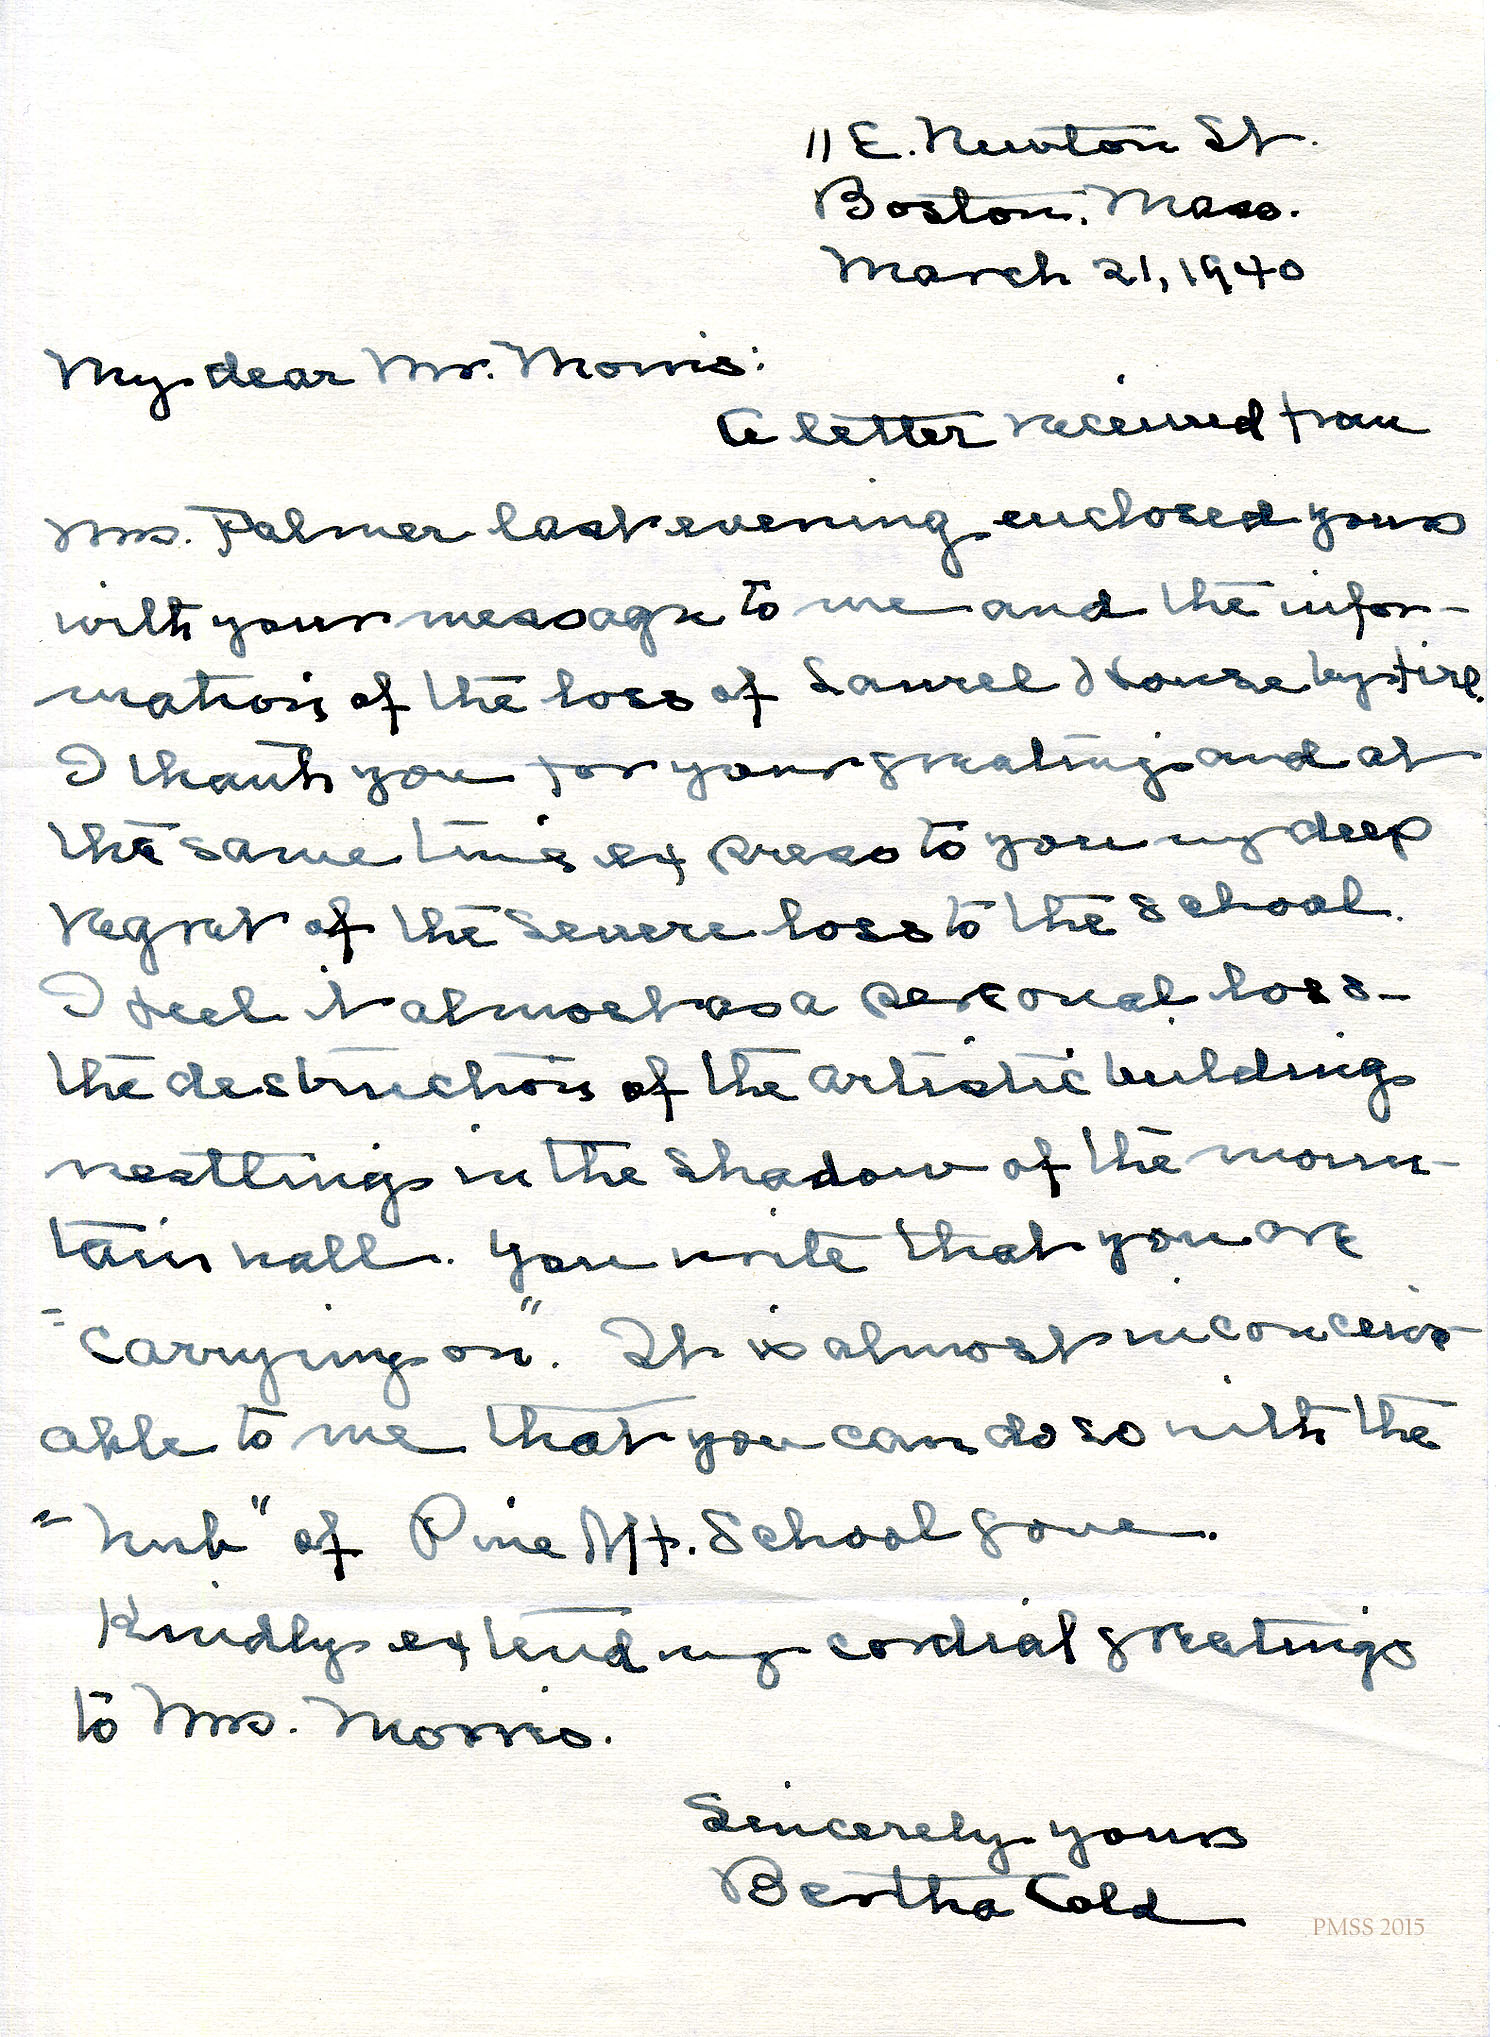 11 E. Newton St.
Boston, Mass.
March 21, 1940
My dear Mr. Morris:
A letter received from
Mrs. Palmer last evening enclosed yours
with your message to me and the infor-
mation of the loss of Laurel House by fire.
I thank you for your greeting and at
the same time express to you my deep
regret of the severe loss to the School.
I feel it almost as a personal loss -
the destruction of the artistic building
nestling in the shadow of the moun-
tain wall. You write that you are
"carrying on". It is almost inconceiv-
able to me that you can do so with the
"hub" of Pine Mt. School gone.
Kindly extend my cordial greetings
to Mrs. Morris.
Sincerely yours
Bertha Cold
PMSS 2015